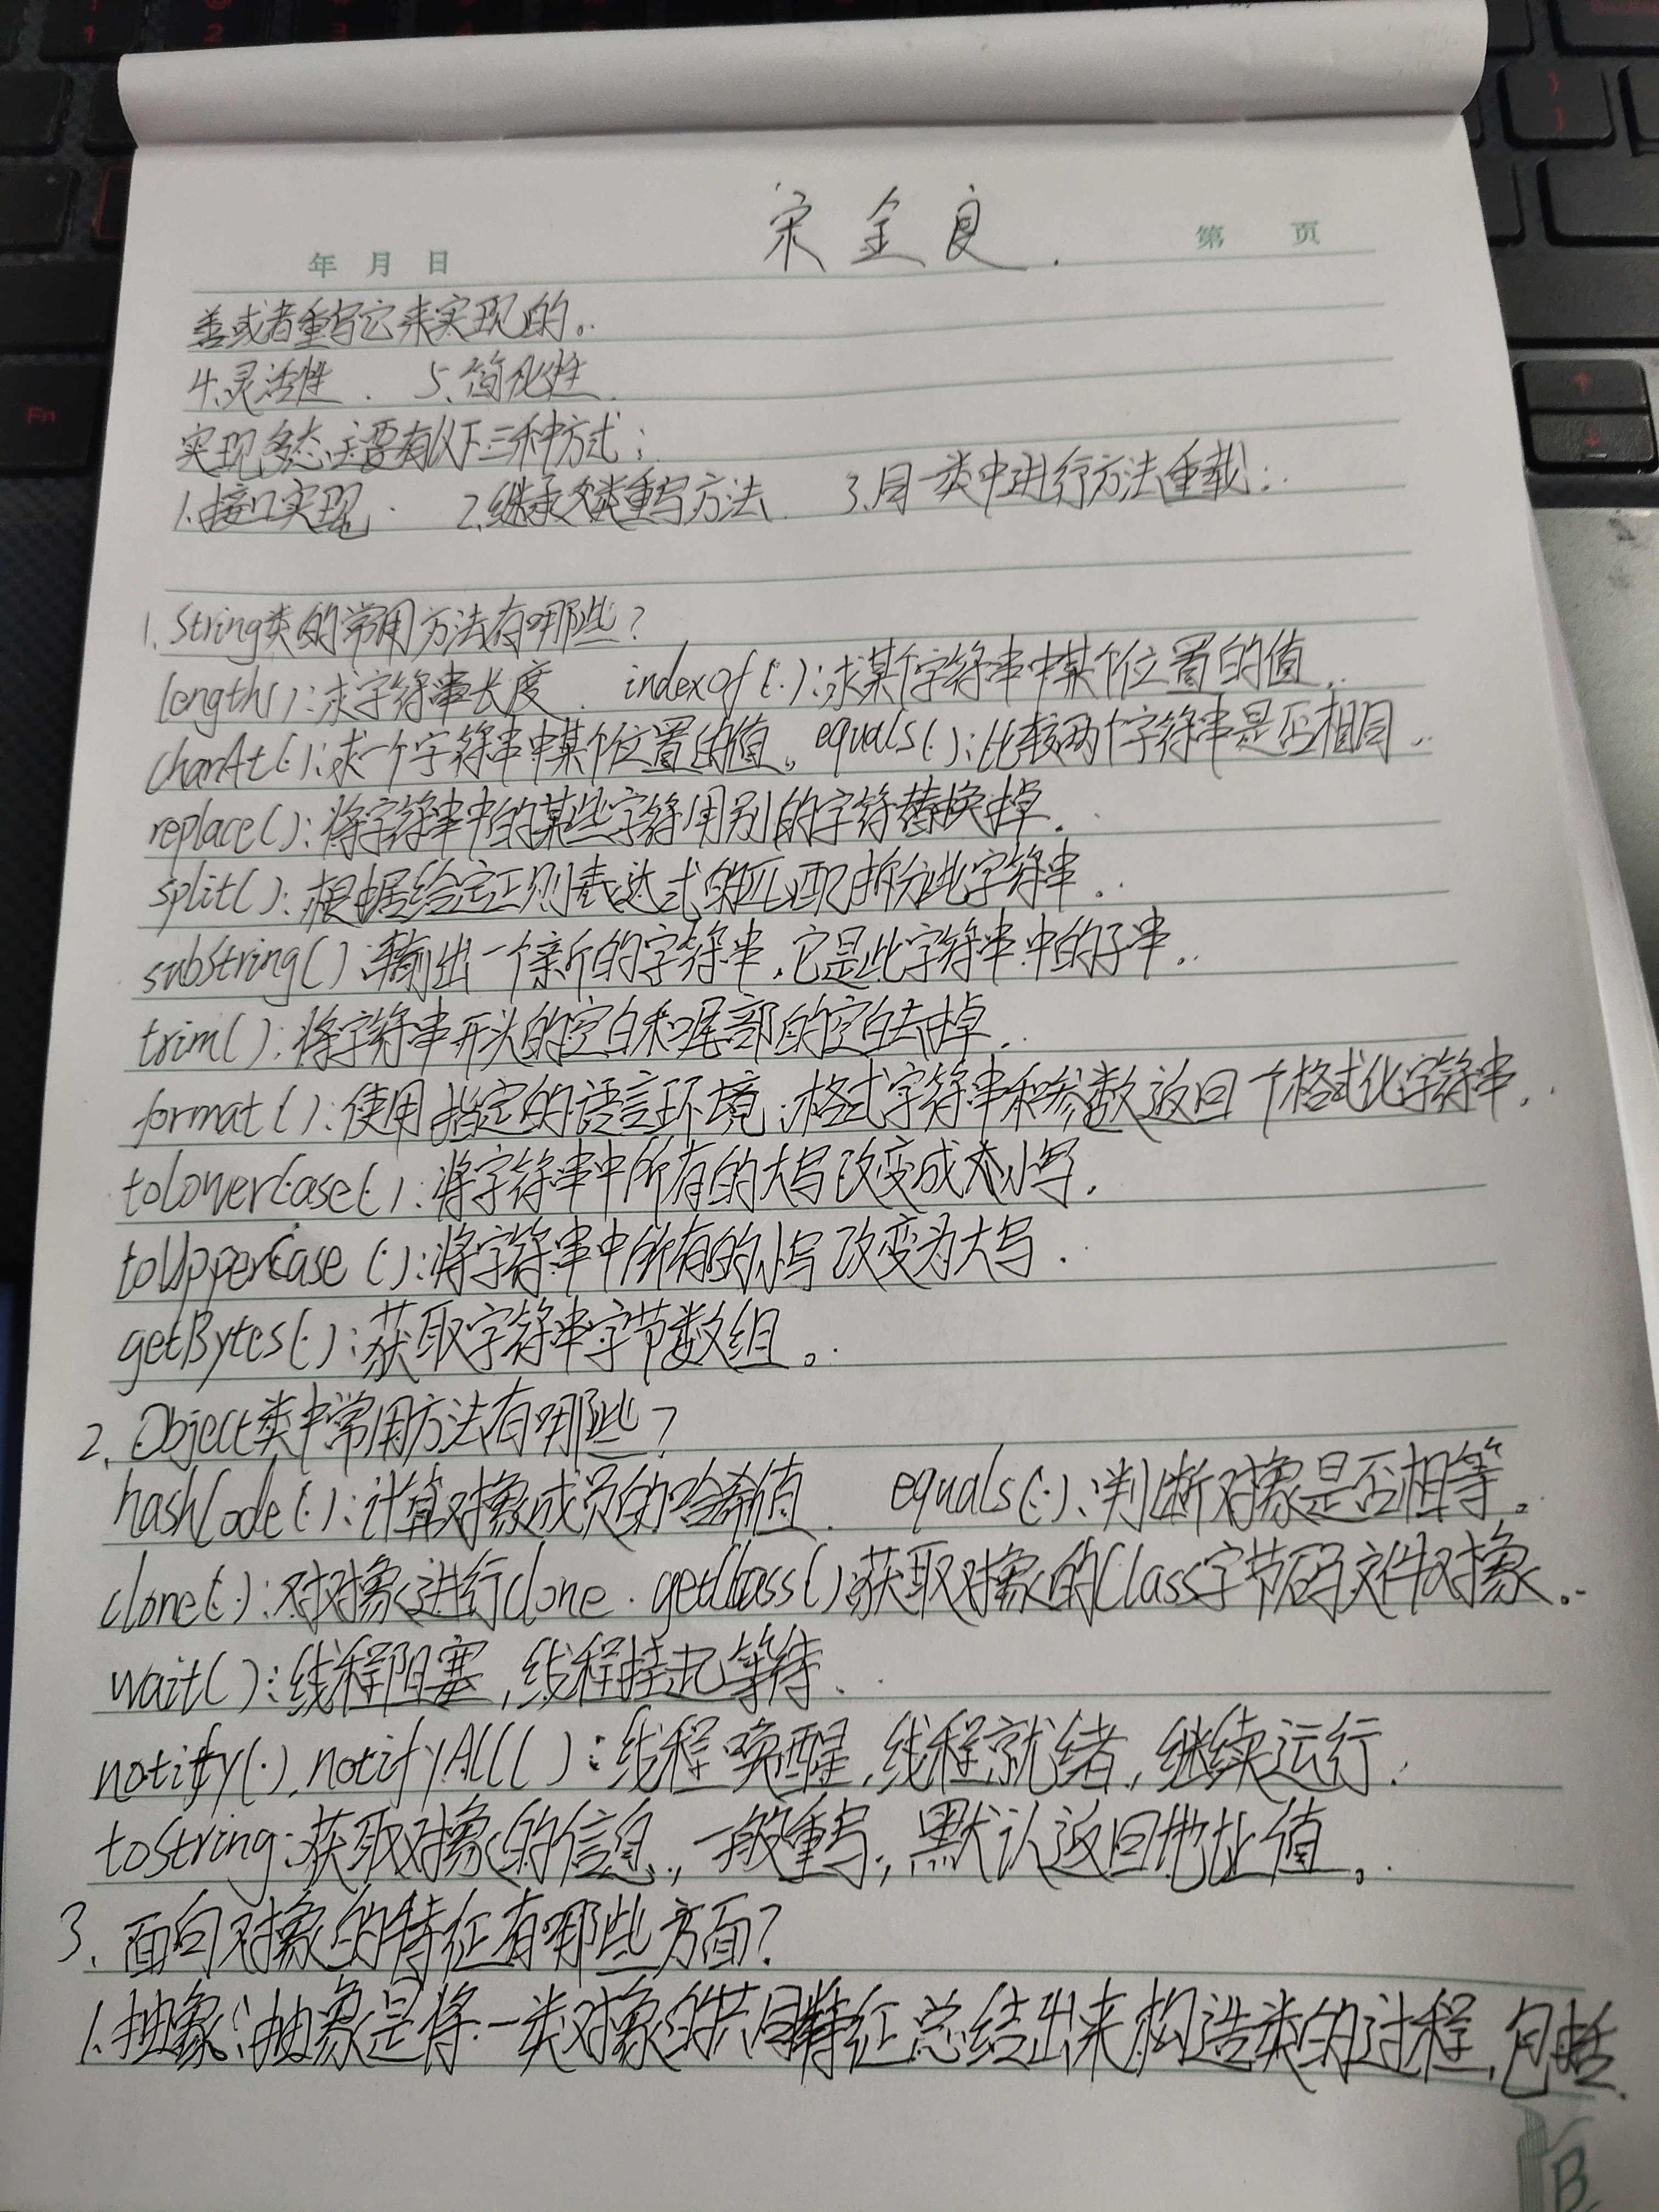 宋全良.
年 月 日 第 页
善或者重写它来实现的。
4.灵活性. 5.简化性.
实现多态主要有以下三种方式:
1.接口实现. 2.继承父类重写方法. 3.同一类中进行方法重载.
1.String类的常用方法有哪些?
length():求字符串长度. indexof():求某个字符串中某个位置的值.
charAt():求一个字符串中某个位置的值。equals():比较两个字符串是否相同.
replace():将字符串中的某些字符用别的字符替换掉.
split():根据给定正则表达式的匹配拆分此字符串.
substring():输出一个新的字符串,它是此字符串中的子串.
trim():将字符串开头的空白和尾部的空白去掉.
format():使用指定的语言环境,格式字符串和参数返回一个格式化字符串.
toLowerCase():将字符串中所有的大写改变成小写.
toUpperCase():将字符串中所有的小写改变为大写.
getBytes():获取字符串字节数组。
2.Object类中常用方法有哪些?
hashCode():计算对象成员的哈希值. equals():判断对象是否相等。
clone():对对象进行clone. getClass():获取对象的Class字节码文件对象。
wait():线程阻塞,线程挂起等待.
notify(),notifyAll():线程唤醒,线程就绪,继续运行.
toString:获取对象的信息,一般重写,默认返回地址值。
3.面向对象的特征有哪些方面?
1.抽象:抽象是将一类对象的共同特征总结出来构造类的过程,包括
B